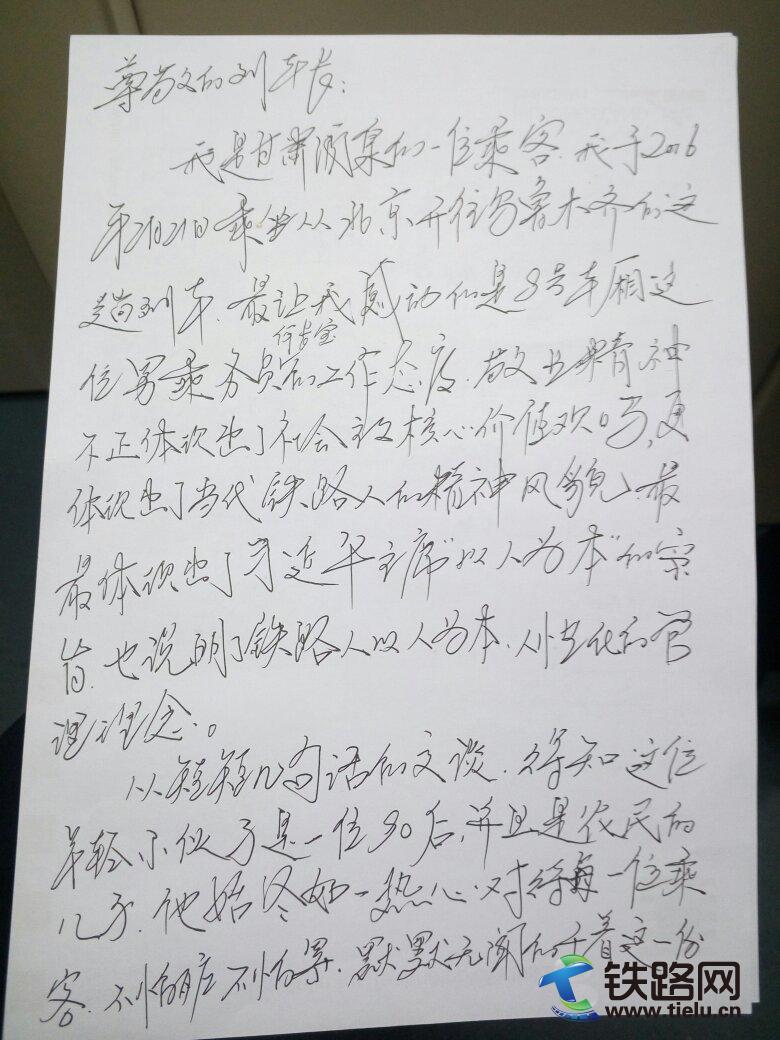 尊敬的列车长：
我是甘肃酒泉的一位乘客.我于2016
年2月21日乘坐从北京开往乌鲁木齐的这
趟列车.最让我感动的是8号车厢这
位男乘务员何吉宝的工作态度.敬业精神
不正体现出了社会主义核心价值观吗,更
体现出了当代铁路人的精神风貌、最
最体现出了习近平主席“以人为本”的宗
旨.也说明了铁路人以人为本.人性化的管
理理念。
从短短几句话的交谈.得知这位
年轻小伙子是一位90后,并且是农民的
儿子.他始终如一热心.对待每一位乘
客.不怕脏不怕累.默默无闻的干着这一份
铁路网
www.tielu.cn